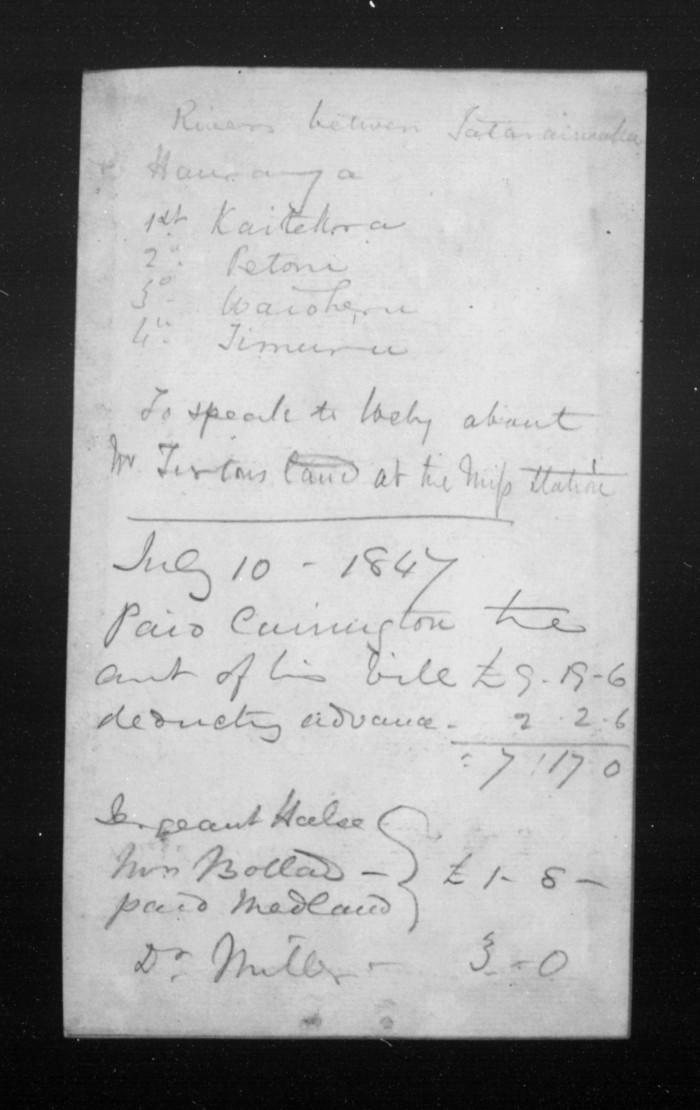 Rivers between Tataraimaka
Hauranga
1st Kaitekora
2" Petone
3° Waioheru
4" Timuru
To speak to Wely about
Mr Tirtons land at the Miss Station
July 10 - 1847
Paid Carrington the
amt of his bill £9-19-6
deducting advance - 2.2.6
: 7:17 0
Sergeant Halse
Mrs Bolland -
paid Medland
£ 1- 8 -
Dr. Miller - 3 - 0